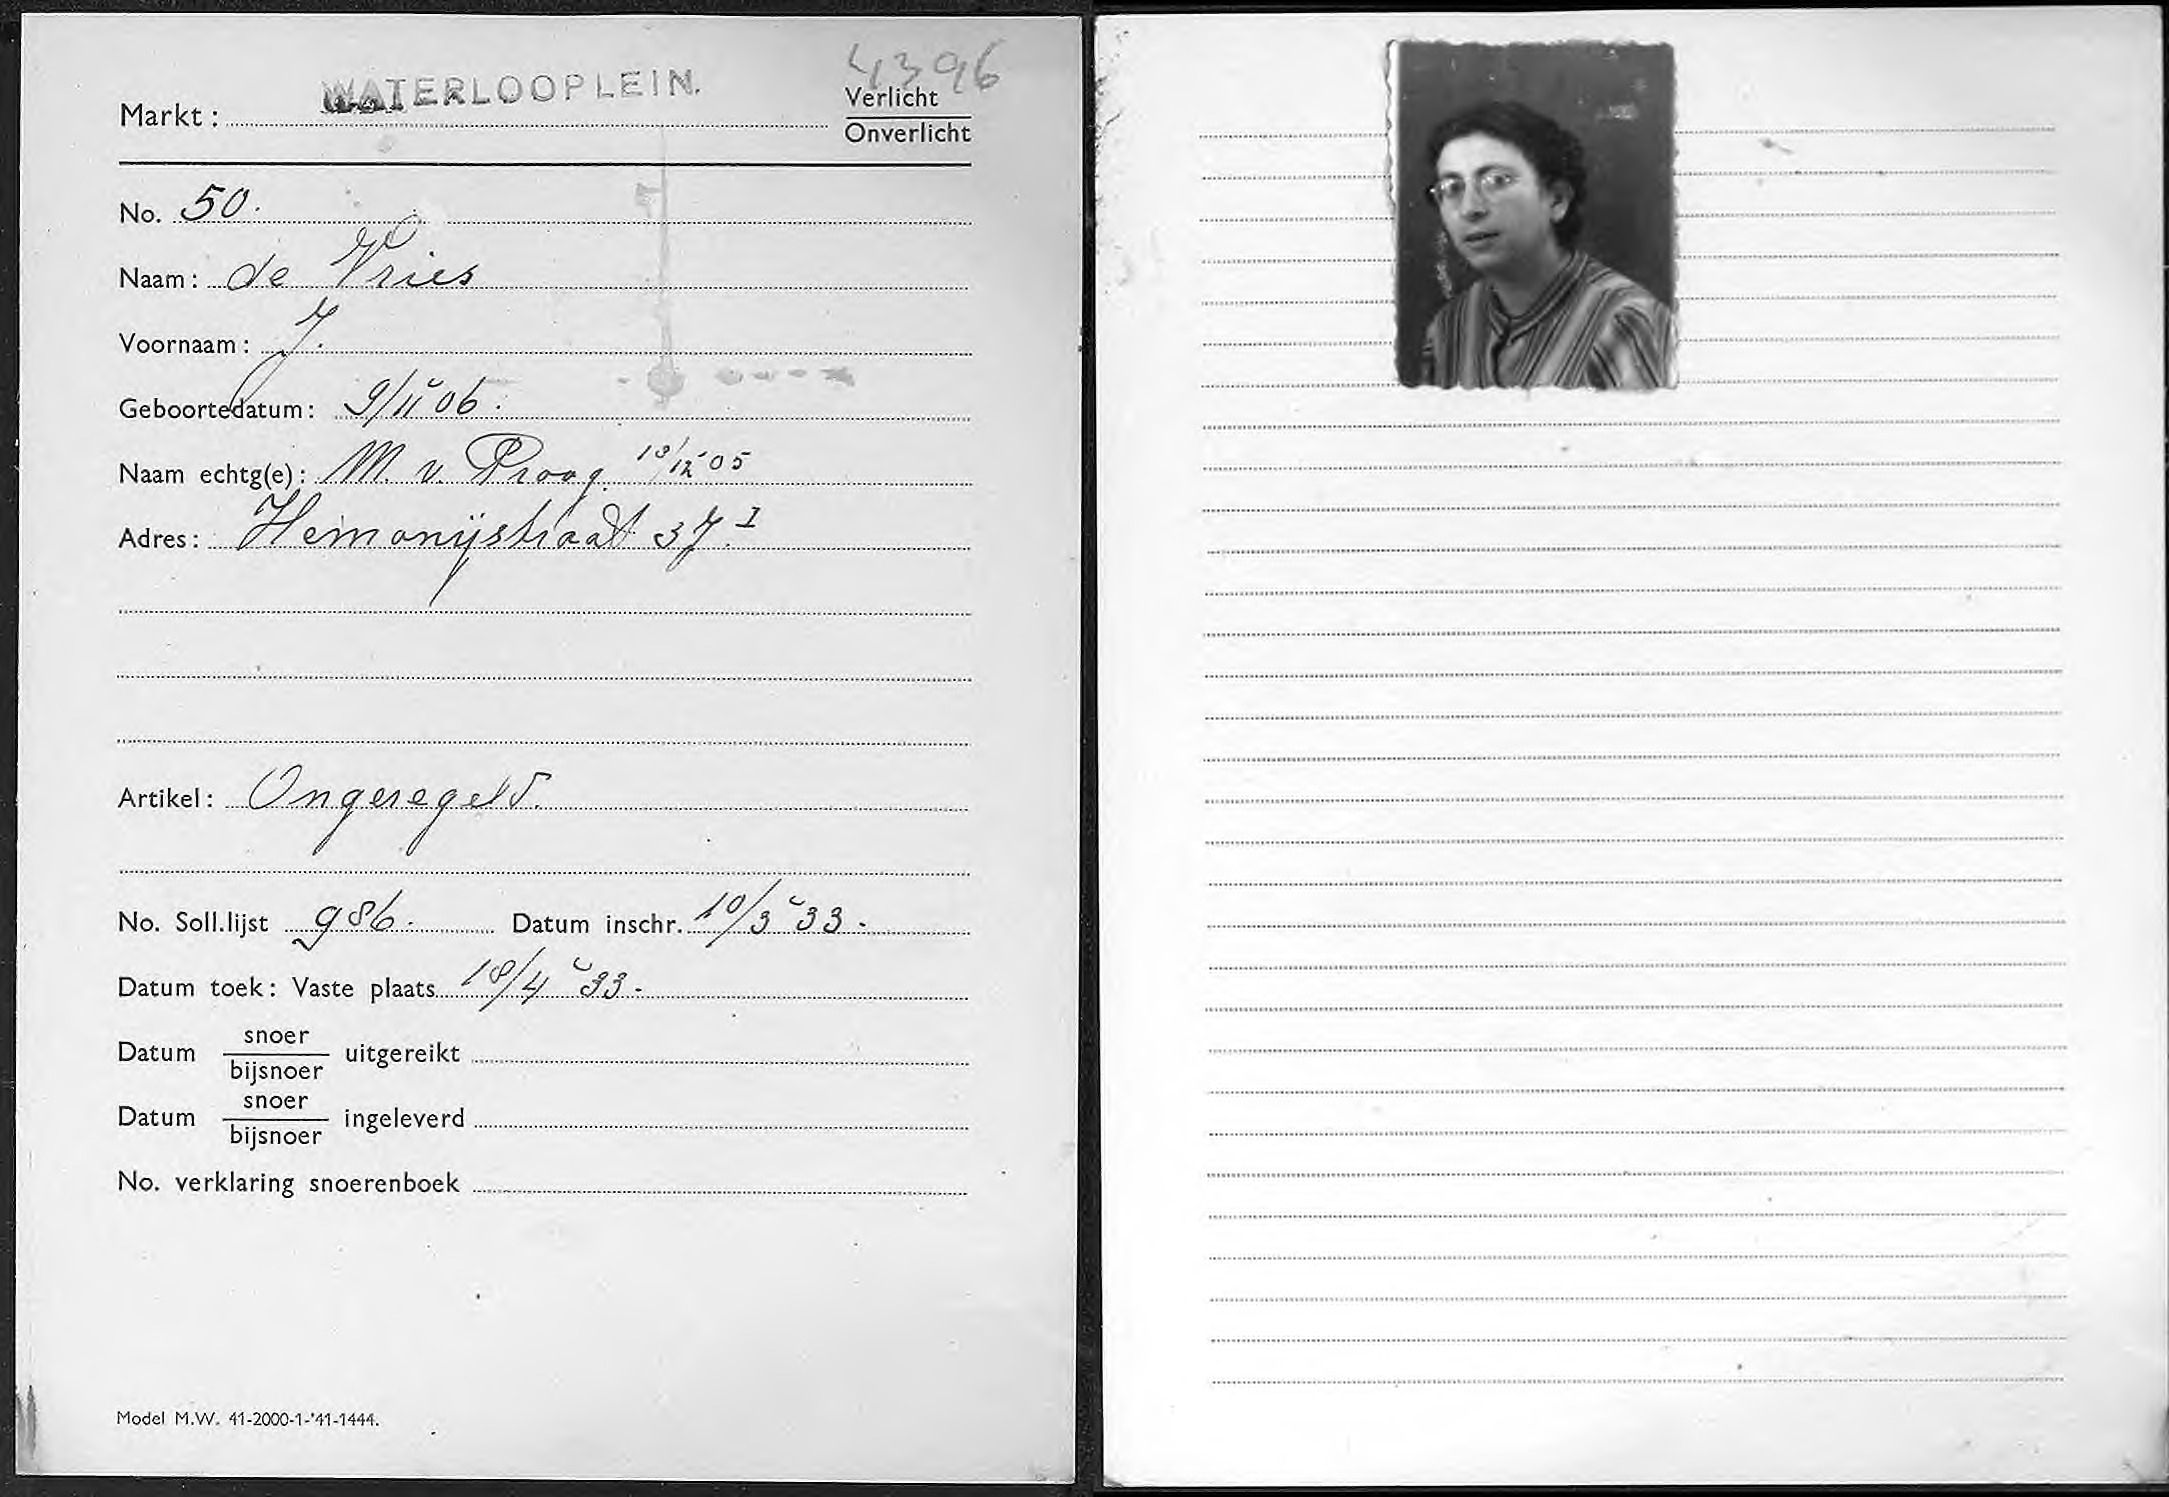 4396
Markt: WATERLOOPLEIN. Verlicht
Onverlicht
No. 50.
Naam: de Vries
Voornaam: J.
Geboortedatum: 9/11 06.
Naam echtg(e): M. v. Praag. 10/12 05
Adres: Hemonijstraat 37.I
Artikel: Ongeregeld.
No. Soll.lijst 986. Datum inschr. 10/3 33.
Datum toek: Vaste plaats 18/4 33.
Datum snoer
bijsnoer uitgereikt
Datum snoer
bijsnoer ingeleverd
No. verklaring snoerenboek
Model M.W. 41-2000-1-'41-1444.